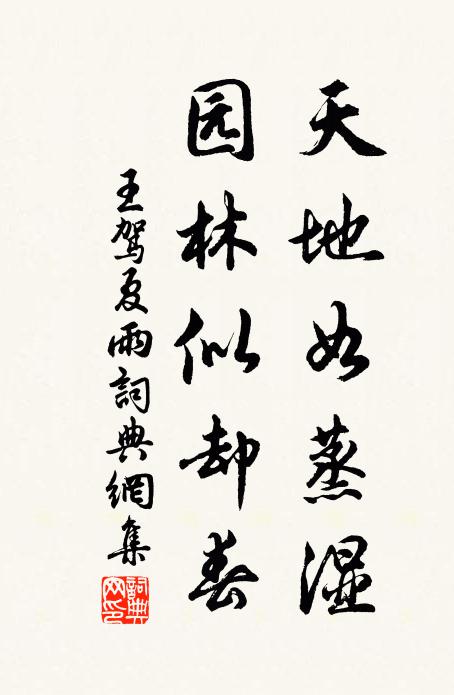 天地如蒸湿
园林似却春
王驾夏雨詞典網集
詞典網印